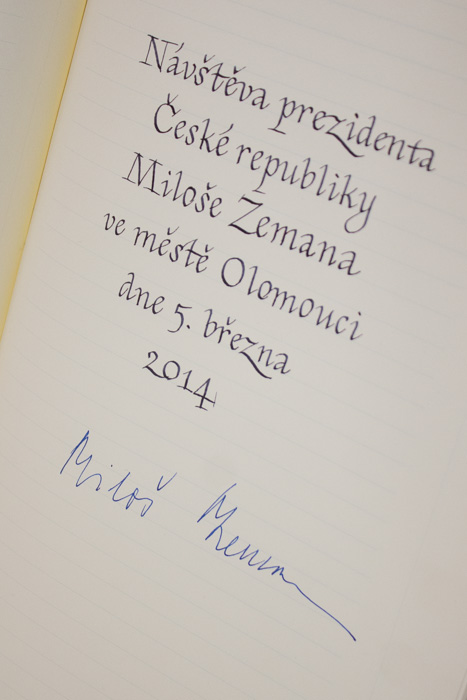 Návštěva prezidenta
České republiky
Miloše Zemana
ve městě Olomouci
dne 5. března
2014
Miloš Zeman